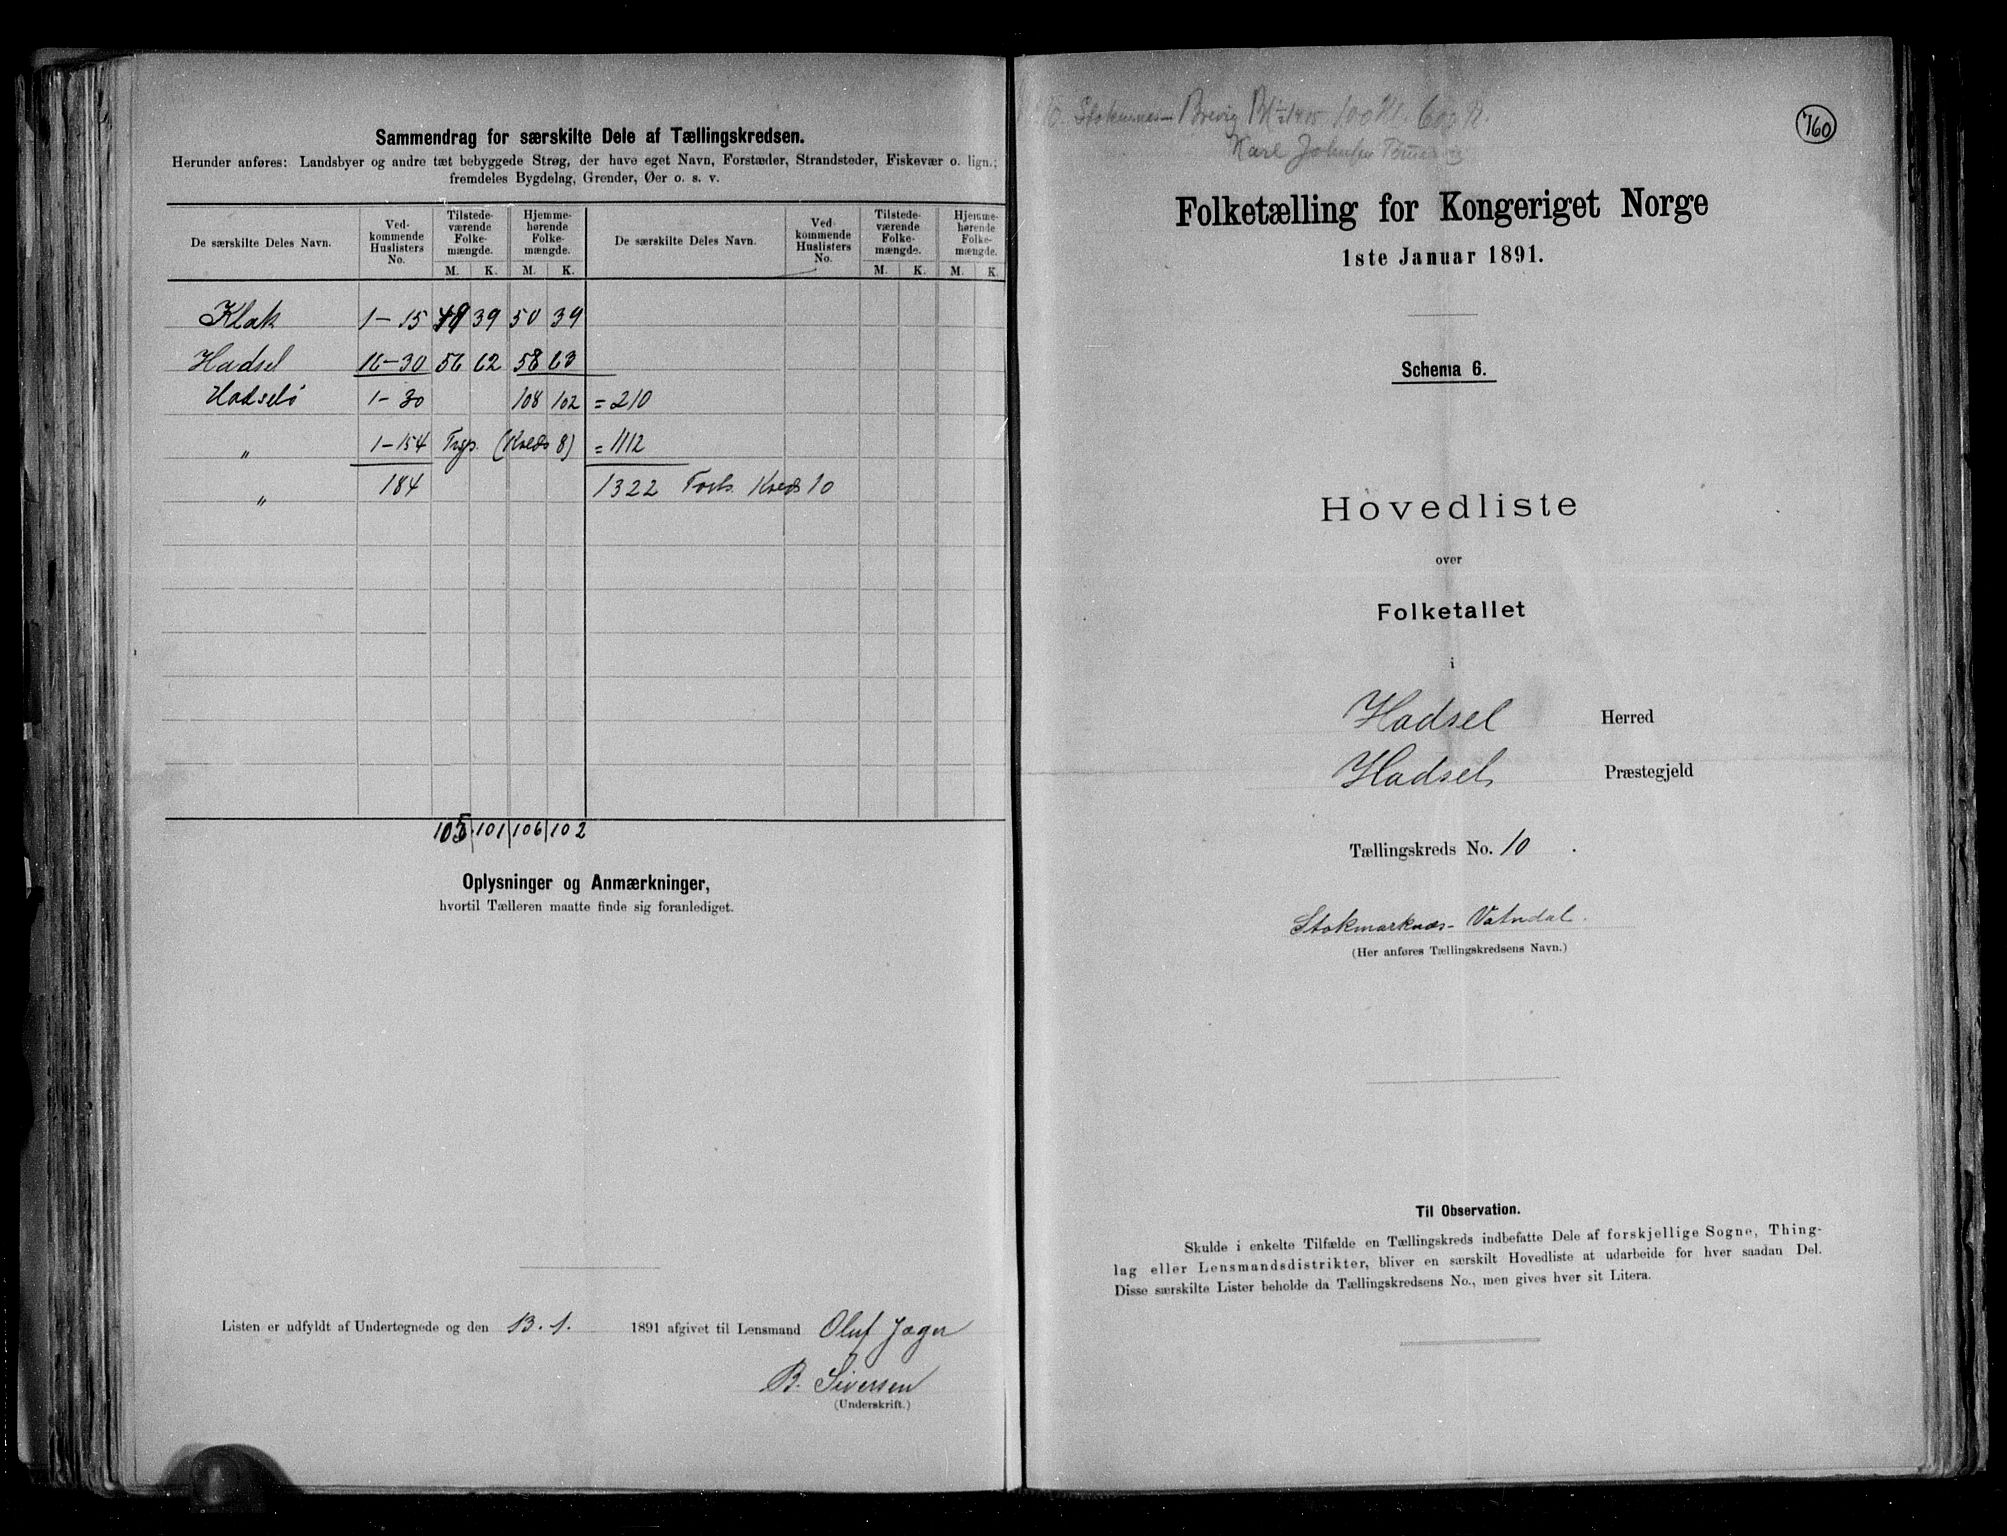 Sammendrag for særskilte Dele af Tællingskredsen.
Herunder anføres: Landsbyer og andre tæt bebyggede Strøg, der have eget Navn, Forstæder, Strandsteder, Fiskevær o. lign.;
fremdeles Bygdelag, Grender, Øer o. s. v.
De særskilte Deles Navn. Ved-kommende Huslisters No. Tilstede-værende Folke-mængde. Hjemme-hørende Folke-mængde. De særskilte Deles Navn. Ved-kommende Huslisters No. Tilstede-værende Folke-mængde. Hjemme-hørende Folke-mængde.
M. K. M. K. M. K. M. K.
Klak 1-15 49 39 50 39
Hadsel 16-30 56 62 58 63
Hadselø 1-30 108 102 = 210
" 1-154 (Kreds 8) = 1112
" 184 1322 Kreds 10
105 101 106 102
Oplysninger og Anmærkninger,
hvortil Tælleren maatte finde sig foranlediget.
Listen er udfyldt af Undertegnede og den 13. 1. 1891 afgivet til Lensmand Oluf Jæger
B. Siversen
(Underskrift.)
Brevig 100 Kr. 600 Kr.
760
Karl Johnsen
Folketælling for Kongeriget Norge
1ste Januar 1891.
Schema 6.
Hovedliste
over
Folketallet
i
Hadsel Herred
Hadsel Præstegjeld
Tællingskreds No. 10.
Stokmarknæs- Vatndal.
(Her anføres Tællingskredsens Navn.)
Til Observation.
Skulde i enkelte Tilfælde en Tællingskreds indbefatte Dele af forskjellige Sogne, Thing-
lag eller Lensmandsdistrikter, bliver en særskilt Hovedliste at udarbeide for hver saadan Del.
Disse særskilte Lister beholde da Tællingskredsens No., men gives hver sit Litera.